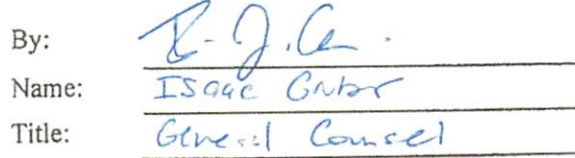 By:
Name: Isaac
Title: General Counsel